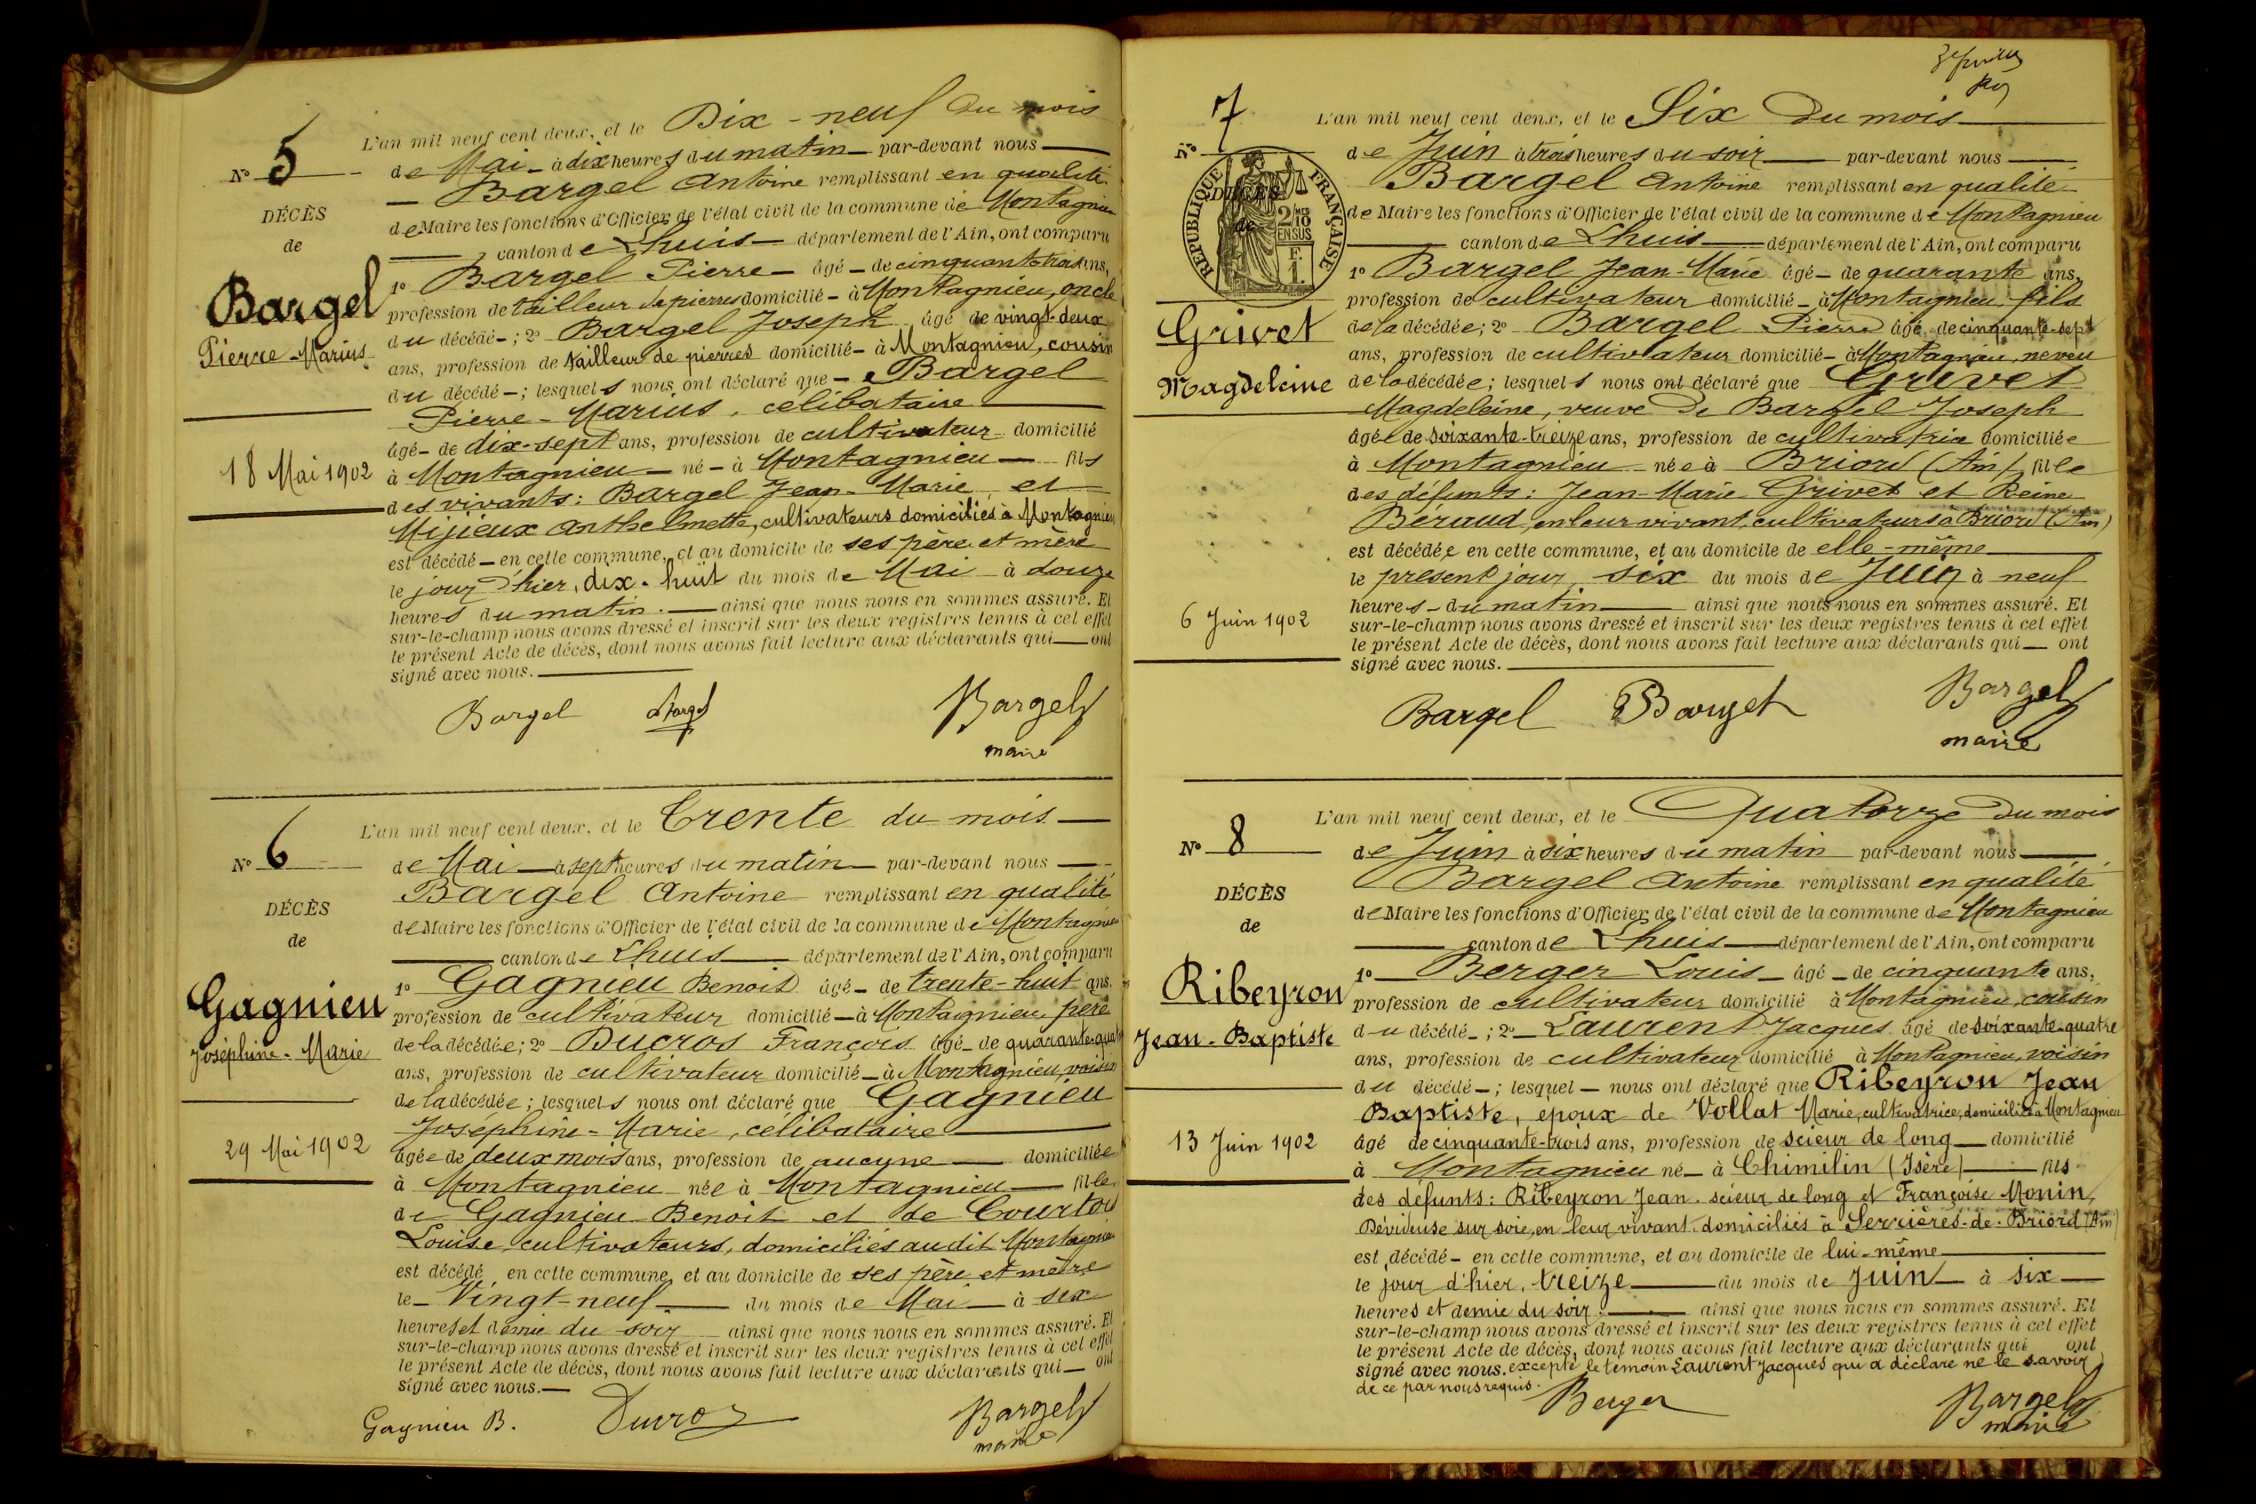 L'an mil neuf cent deux, et le Dix-neuf du mois
N° 5
de Mai à dix heures du matin par-devant nous
Bargel Antoine remplissant en qualité
DÉCÈS
de Maire les fonctions d'Officier de l'état civil de la commune de Montagnieu
de
canton de Lhuis département de l'Ain, ont comparu
Bargel
Pierre-Marius
1° Bargel Pierre âgé de cinquante trois ans,
profession de tailleur de pierres domicilié à Montagnieu, oncle
du décédé ; 2° Bargel Joseph âgé de vingt-deux
ans, profession de tailleur de pierres domicilié à Montagnieu, cousin
du décédé ; lesquels nous ont déclaré que Bargel
Pierre-Marius, célibataire
âgé de dix-sept ans, profession de cultivateur domicilié
18 Mai 1902
à Montagnieu né à Montagnieu fils
des vivants: Bargel Jean-Marie et
Mijieux Anthelmette, cultivateurs domiciliés à Montagnieu
est décédé en cette commune, et au domicile de ses père et mère
le jour d'hier, dix-huit du mois de Mai à douze
heures du matin. ainsi que nous nous en sommes assuré. Et
sur-le-champ nous avons dressé et inscrit sur les deux registres tenus à cet effet
le présent Acte de décès, dont nous avons fait lecture aux déclarants qui ont
signé avec nous.
Bargel Bargel
maire
L'an mil neuf cent deux, et le Trente du mois
N° 6
de Mai à sept heures du matin par-devant nous
Bargel Antoine remplissant en qualité
DÉCÈS
de Maire les fonctions d'Officier de l'état civil de la commune de Montagnieu
de
canton de Lhuis département de l'Ain, ont comparu
Gagnieu
Joséphine-Marie
1° Gagnieu Benoit âgé de trente-huit ans,
profession de cultivateur domicilié à Montagnieu, père
de la décédée ; 2° Ducros François âgé de quarante-quatre
ans, profession de cultivateur domicilié à Montagnieu, voisin
de la décédée ; lesquels nous ont déclaré que Gagnieu
Joséphine-Marie, célibataire
29 Mai 1902
âgée de deux mois ans, profession de aucune domiciliée
à Montagnieu née à Montagnieu fille
de Gagnieu Benoit et de Courtou
Louise, cultivateurs, domiciliés audit Montagnieu
est décédé en cette commune, et au domicile de ses père et mère
le Vingt-neuf du mois de Mai à six
heures et demie du soir ainsi que nous nous en sommes assuré. Et
sur-le-champ nous avons dressé et inscrit sur les deux registres tenus à cet effet
le présent Acte de décès, dont nous avons fait lecture aux déclarants qui ont
signé avec nous.
Gagnieu B. Ducros Bargel
maire
L'an mil neuf cent deux, et le Six du mois
N° 7
de Juin à trois heures du soir par-devant nous
Bargel Antoine remplissant en qualité
DÉCÈS
de
RÉPUBLIQUE FRANÇAISE
2/10 EN SUS
F. 1
de Maire les fonctions d'Officier de l'état civil de la commune de Montagnieu
canton de Lhuis département de l'Ain, ont comparu
Grivet
Magdeleine
1° Bargel Jean-Marie âgé de quarante ans,
profession de cultivateur domicilié à Montagnieu fils
de la décédée ; 2° Bargel Pierre âgé de cinquante-sept
ans, profession de cultivateur domicilié à Montagnieu, neveu
de la décédée ; lesquels nous ont déclaré que Grivet
Magdeleine, veuve de Bargel Joseph
âgée de soixante-treize ans, profession de cultivatrice domiciliée
à Montagnieu née à Briord (Ain) fille
des défunts: Jean-Marie Grivet et Reine
Béraud, en leur vivant, cultivateurs à Briord (Ain)
est décédée en cette commune, et au domicile de elle-même
le présent jour, six du mois de Juin à neuf
6 Juin 1902
heures du matin ainsi que nous nous en sommes assuré. Et
sur-le-champ nous avons dressé et inscrit sur les deux registres tenus à cet effet
le présent Acte de décès, dont nous avons fait lecture aux déclarants qui ont
signé avec nous.
Bargel Bargel
maire
L'an mil neuf cent deux, et le Quatorze du mois
N° 8
de Juin à six heures du matin par-devant nous
Bargel Antoine remplissant en qualité
DÉCÈS
de Maire les fonctions d'Officier de l'état civil de la commune de Montagnieu
de
canton de Lhuis département de l'Ain, ont comparu
Ribeyron
Jean-Baptiste
1° Berger Louis âgé de cinquante ans,
profession de cultivateur domicilié à Montagnieu, cousin
du décédé ; 2° Laurent Jacques âgé de soixante-quatre
ans, profession de cultivateur domicilié à Montagnieu, voisin
du décédé ; lesquel nous ont déclaré que Ribeyron Jean
Baptiste, époux de Vollat Marie, cultivatrice, domiciliés à Montagnieu
13 Juin 1902
âgé de cinquante-trois ans, profession de scieur de long domicilié
à Montagnieu né à Chimilin (Isère) fils
des défunts: Ribeyron Jean, scieur de long et Françoise Monin,
Dévideuse sur soie, en leur vivant domiciliés à Serrières-de-Briord (Ain)
est décédé en cette commune, et au domicile de lui-même
le jour d'hier, treize du mois de Juin à six
heures et demie du soir. ainsi que nous nous en sommes assuré. Et
sur-le-champ nous avons dressé et inscrit sur les deux registres tenus à cet effet
le présent Acte de décès, dont nous avons fait lecture aux déclarants qui ont
signé avec nous. excepté le témoin Laurent Jacques qui a déclaré ne le savoir
de ce par nous requis.
Berger Bargel
maire